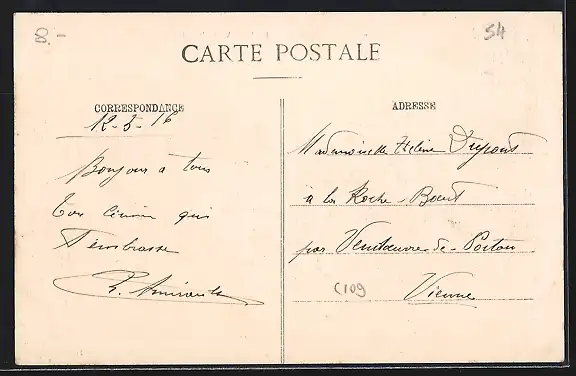 8.-
54
CARTE POSTALE
CORRESPONDANCE
12-5-16
Bonjour à tous
Ton cousin qui
T'embrasse
ADRESSE
Mademoiselle Hélène Dupont
à la Roche-Bœuf
par Vendeuvre-de-Poitou
Vienne
C109